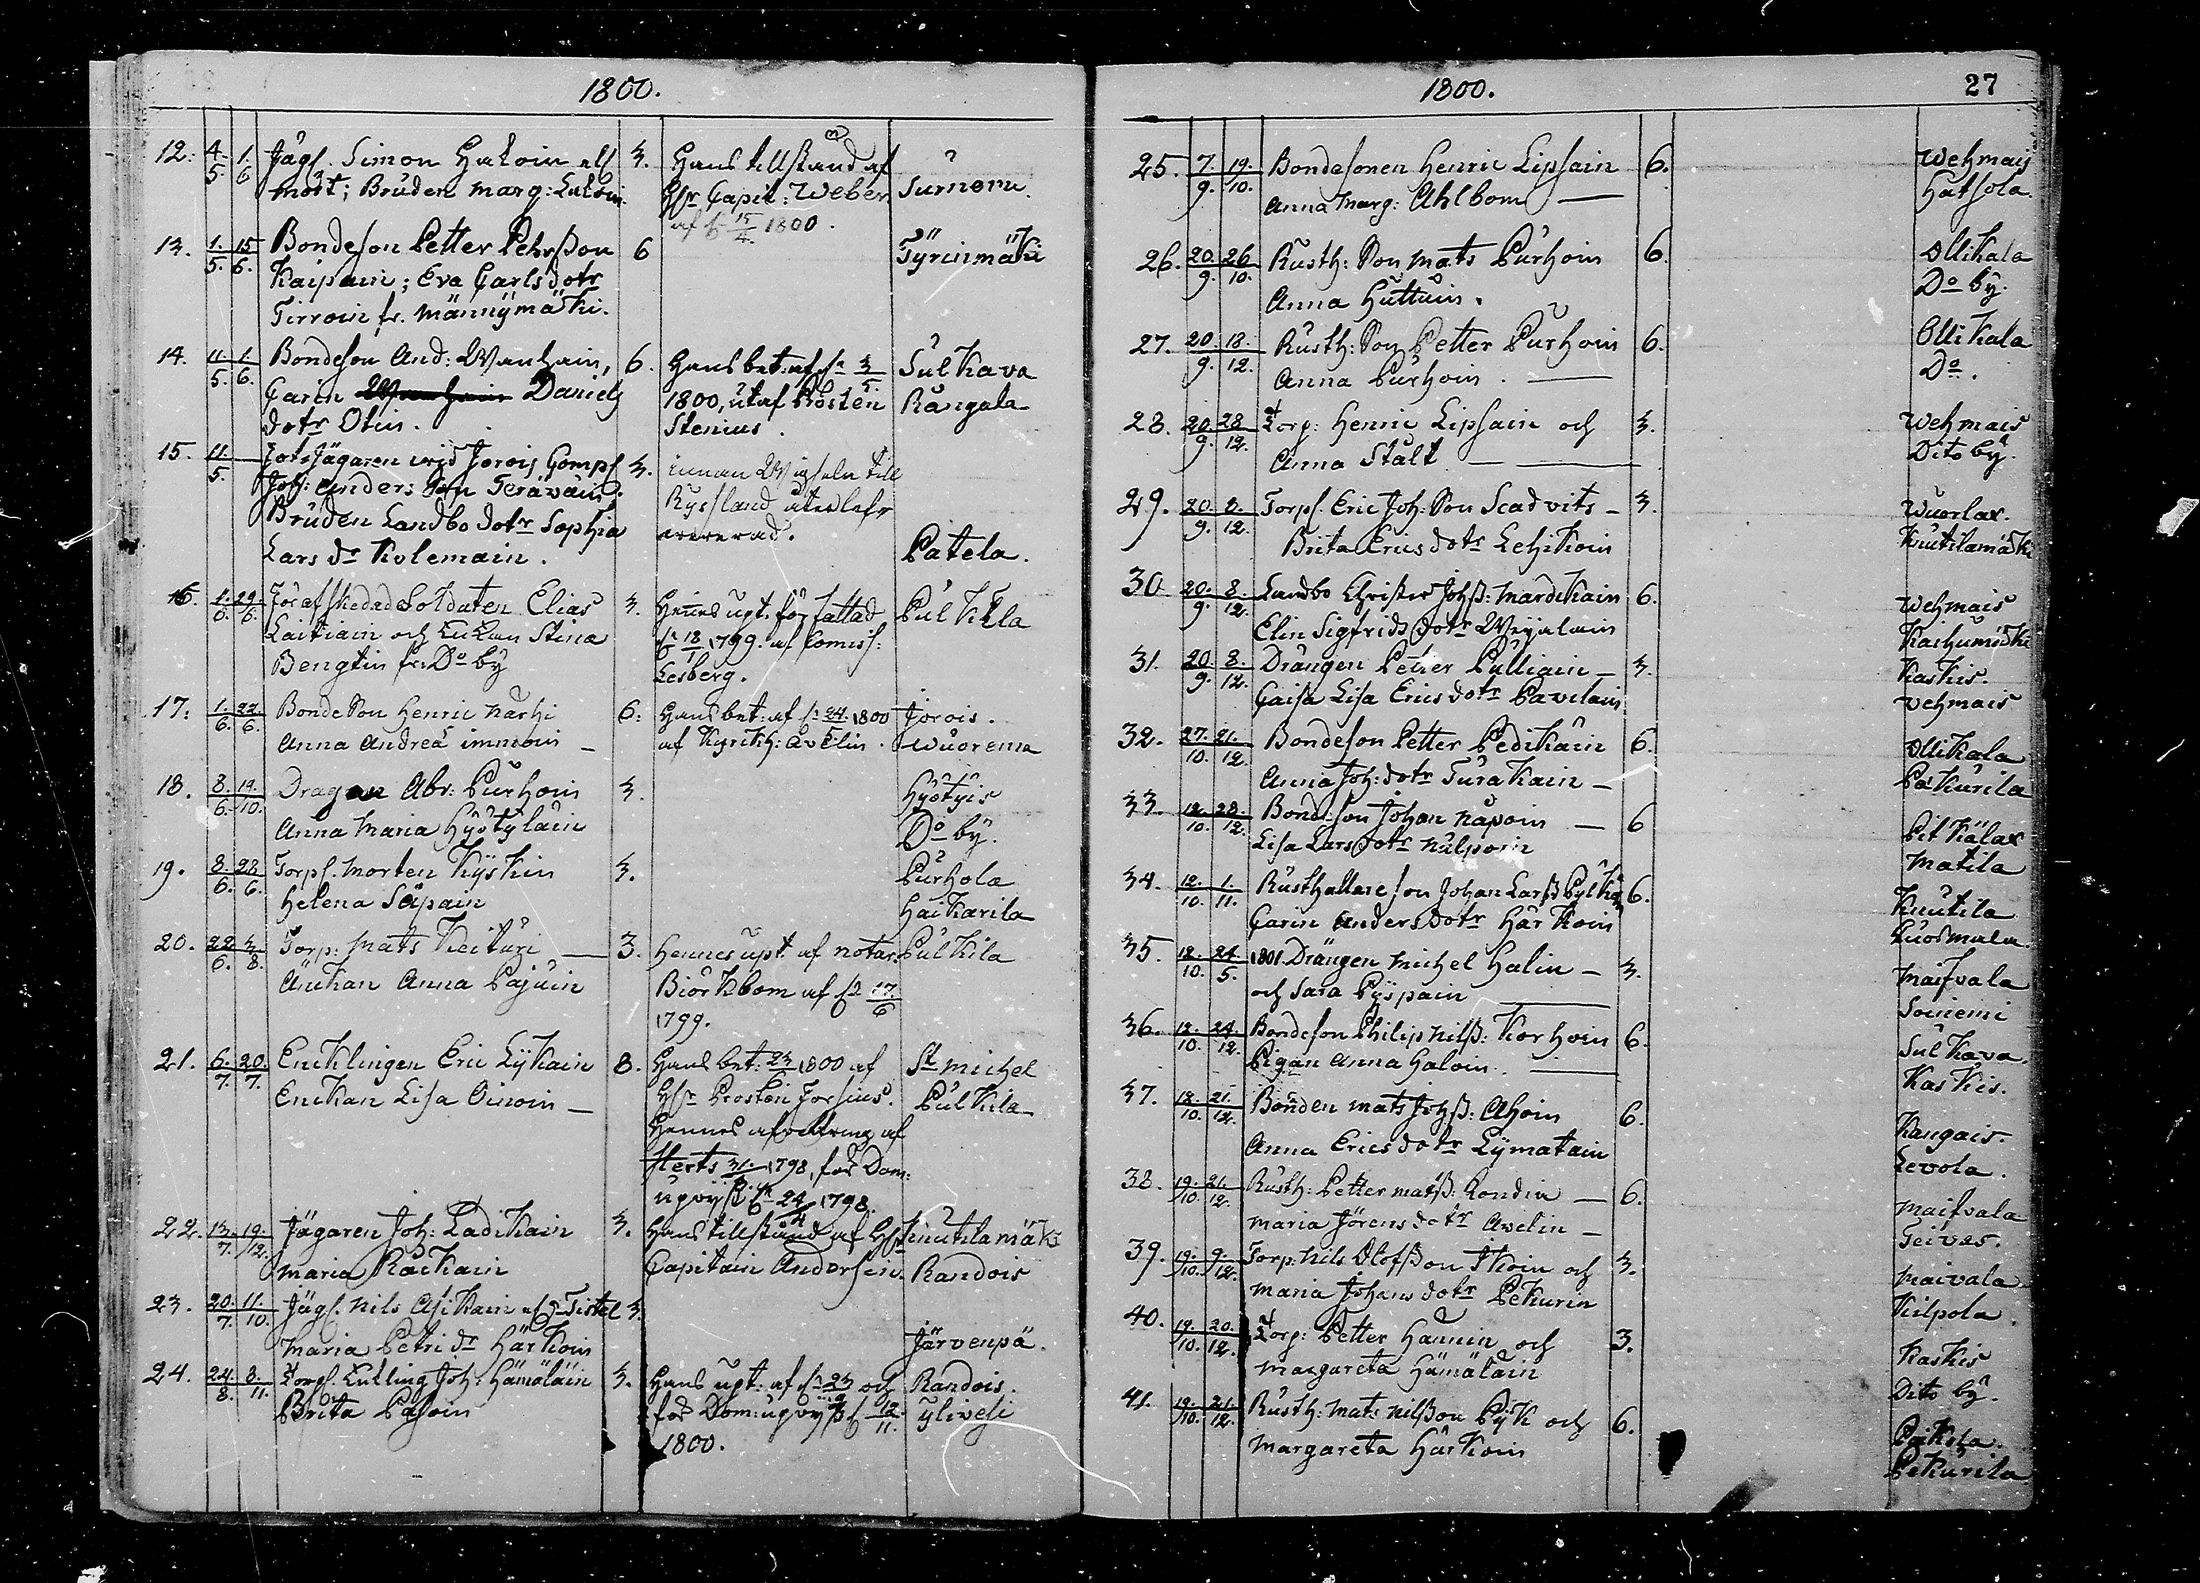 1800.
12. 4/5 1/6 Jägs. Simon Haloin als 3. Hans tillstånd af
mört; Bruden Marg: Luloin. Hr Capit: Weber Surnoru.
af d. 15/4. 1800.
13. 1./5. 15/6. Bondeson Petter Pehrsson 6 Tyrinmäki
Kaipain; Eva Carls dotr
Tirroin fr. Männymäki.
14. 11/5. 1/6. Bondeson And: Wanhain, 6. Hans bet: af d. 3/5. Sulkava
Carin Daniels 1800, utaf Prosten Rangala
dotr Otin. Stenius.
15. 11./5. Jägaren vid Jorois Comps 3. innan Wigseln till
Joh: Anders Son Teräväin. Ryssland
Bruden Landbo dotr Sophia
Lars dr Kolemain. Patela.
16. 1./6. 29/6. afskedad Soldaten Elias 3. Hennes upt. författad Pulkila
Laitiain och Enkan Stina d. 18/1 1799. af Comiss:
Bengtin fr. Do by Lesberg.
17. 1./6. 22/6. Bonde Son Henric Närhi 6. Hans bet: af d. 24. 1800 Jorois.
Anna Andreæ immoin — af Kyrkh: Avelin. Wuorenma
18. 8./6. 19./10. Drägen Abr: Purhoin 3. Hyötyis
Anna Maria Hyötyläin Do by.
19. 8./6. 28/6. Torps. Morten Kyskin 3. Purhola
Helena Säpain Haikarila
20. 22/6. 3/8. Torp: Mats Keituri — 3. Hennes upt af notar. Pulkila
Änkan Anna Pajuin Biörkbom af d. 17./6
1799.
21. 6./7. 20./7. Enklingen Eric Lykain 8. Hans bet: 23 1800 af St Michel
Enkan Lisa Oinoin — Hr Prosten Forsius. Pulkila
Hennes afvittring af
Herts 31. 1798, för Dom:
upvyst d. 24/4 1798.
22. 13./7. 19./12. Jägaren Joh: Ladikain 3. Hans tillstånd af Hr Knutilamäki
Maria Räikain Capitain Andersin. Randois
23. 20./7. 11./10. Jägs. Nils Asikain Tistel 3.
Maria Petri dr Härkoin Järvenpä.
24. 24./8. 8./11. Torps. Enkling Joh: Hämäläin 3. Hans upt: af d. 23 och Randois.
Brita Pasoin för Dom: upvyst d. 12/11. ylivesi
1800.
1800. 27
25. 7./9. 19./10. Bondesonen Henric Lipsain 6. Wehmais
Anna Marg: Ahlbom — Hatsola.
26. 20./9. 26/10. Rusth: Son Mats Purhoin 6. Ollikala
Anna Huttuin. Do by.
27. 20./9. 18./12. Rusth: Son Petter Purhoin 6. Ollikala
Anna Purhoin. — Do.
28. 20./9. 28/12. Torp: Henric Lipsain och 3. Wehmais
Anna Stålt — Dito by.
29. 20./9. 8./12. Torps. Eric Joh: Son Scadvits — 3. Wuorlax.
Brita Erics dotr Lehikoin Knutilamäki
30 20./9. 8./12. Landbo Christer Johss: Mardikain 6. Wehmais
Elin Sigfrids dotr Weijalain Kaihumäki
31. 20./9. 8./12. Drängen Petter Pulliain — 3. Kaskis.
Caisa Lisa Erics dotr Pavilain vehmais
32. 27./10. 21./12. Bondeson Petter Pedikäin 6. Ollikala
Anna Joh: dotr Turakain — Pakurila
33. 12./10. 28./12. Bondeson Johan Näpoin — 6 Pitkälax
Lisa Lars dotr Kulpoin Matila
34. 12./10. 1./11. Rusthållare son Johan Larss 6. Knutila
Carin Anders dotr Härkoin Luosmala.
35. 18./10. 24./5. 1801 Drängen Michel Halin — 3. Maifvala
och Sara Pyspain — Soinemi
36. 18./10. 24./12. Bondeson Philip Nilss: Korhoin 6. Sulkava
Pigan Anna Haloin. — Kaskis.
37. 18./10. 21./12. Bonden Mats Johss: Ahoin 6. Kangais.
Anna Erics dotr Lymatain Levola.
38. 19./10. 21./12. Rusth: Petter Matss: Londin — 6. Maifvala
Maria Jörens dotr Avelin — Teivas.
39. 19./10. 9./12. Torp: Nils Olofsson Ikoin och 3. Maivala
Maria Johans dotr Pekurin Kilpola.
40. 19./10. 20./12. Torp: Petter Haunin och 3. Kaskis
Margareta Hämäläin Dito by.
41. 19./10. 21/12. Rusth: Mats Nilsson Pyk och 6.
Margareta Härkoin Pekurila